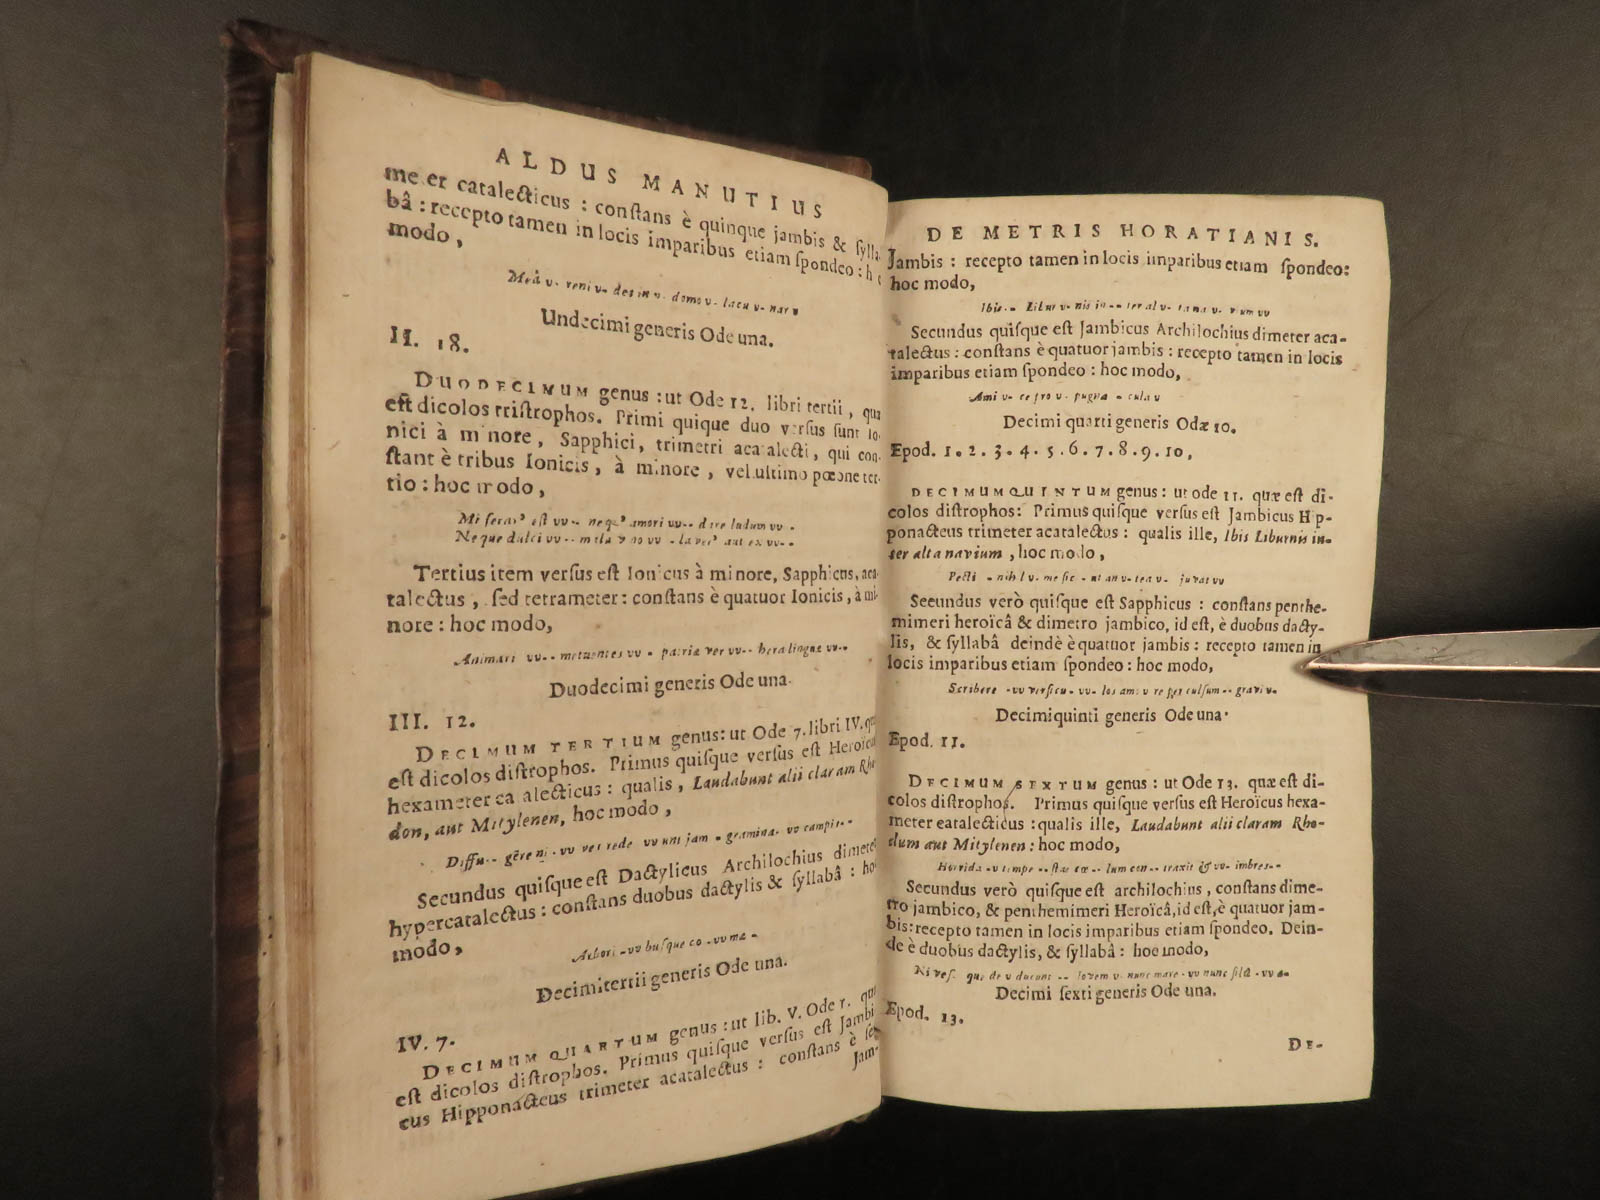 ALDUS MANUTIUS
me er catalecticus : conſtans è quinque jambis & ſylla
bâ : recepto tamen in locis imparibus etiam ſpondeo : h c
modo,
Undecimi generis Ode una.
II. 18.
DUODECIMUM genus : ut Ode 12. libri tertii, quæ
eſt dicolos triſtrophos. Primi quique duo verſus ſunt Io-
nici à minore, Sapphici, trimetri acatalecti, qui con-
ſtant è tribus Ionicis, à minore, vel ultimo pœone ter-
tio : hoc modo,
Miſerar' eſt vv-- neq' amori vv-- dare ludum vv -
Neque dulci vv--
Tertius item verſus eſt Ionicus à minore, Sapphicus, aca-
talectus, ſed tetrameter : conſtans è quatuor Ionicis, à mi-
nore : hoc modo,
metuentes vv - patruæ ver vv-- bera linguæ vv--
Duodecimi generis Ode una.
III. 12.
DECIMUM TERTIUM genus : ut Ode 7. libri IV. quæ
eſt dicolos diſtrophos. Primus quiſque verſus eſt Heroïcus
hexameter ca alecticus : qualis, Laudabunt alii claram Rho-
don, aut Mitylenen, hoc modo,
Diffu-- gêre ni -vv ves rede vv unt jam - gramina- vv campis--
Secundus quiſque eſt Dactylicus Archilochius dimeter
hypercatalectus : conſtans duobus dactylis & ſyllabâ : hoc
modo,
Arbori -vv buſque co -vv mæ -
Decimitertii generis Ode una.
IV. 7.
DECIMUM QUARTUM genus : ut lib. V. Ode 1. quæ
eſt dicolos diſtrophos. Primus quiſque verſus eſt Jambi
cus Hipponacteus trimeter acatalectus : conſtans è ſex
Jam-
DE METRIS HORATIANIS.
Jambis : recepto tamen in locis imparibus etiam ſpondeo:
hoc modo,
Ibis-- Libur v- nis in -- ter al v- ta na v- vium vv
Secundus quiſque eſt Jambicus Archilochius dimeter aca-
talectus : conſtans è quatuor jambis : recepto tamen in locis
imparibus etiam ſpondeo : hoc modo,
Ami v- ce pro v- pugna - cula v
Decimi quarti generis Odæ 10.
Epod. 1. 2. 3. 4. 5. 6. 7. 8. 9. 10,
DECIMUMQUINTUM genus : ut ode 11. quæ eſt di-
colos diſtrophos : Primus quiſque verſus eſt Jambicus Hip-
ponacteus trimeter acatalectus : qualis ille, Ibis Liburnis in-
ter alta navium, hoc modo,
Secundus verò quiſque eſt Sapphicus : conſtans penthe-
mimeri heroïcâ & dimetro jambico, id eſt, è duobus dacty-
lis, & ſyllabâ deindè è quatuor jambis : recepto tamen in
locis imparibus etiam ſpondeo : hoc modo,
Scribere -vv verſicu- vv- los amo v re per culſum -- gravi v-
Decimiquinti generis Ode una.
Epod. 11.
DECIMUM SEXTUM genus : ut Ode 13. quæ eſt di-
colos diſtrophos. Primus quiſque verſus eſt Heroïcus hexa-
meter eatalecticus : qualis ille, Laudabunt alii claram Rho-
dum aut Mitylenen : hoc modo,
Horrida -v tempe -- ſtas cœ -- lum con -- traxit & vv- imbres--
Secundus verò quiſque eſt archilochius, conſtans dime-
tro jambico, & penthemimeri Heroïcâ, id eſt, è quatuor jam-
bis : recepto tamen in locis imparibus etiam ſpondeo. Dein-
de è duobus dactylis, & ſyllabâ : hoc modo,
Niveſ- que de v ducunt -- Iovem v- nunc mare -vv nunc ſilü -vv æ-
Decimi ſexti generis Ode una.
Epod. 13.
DE-